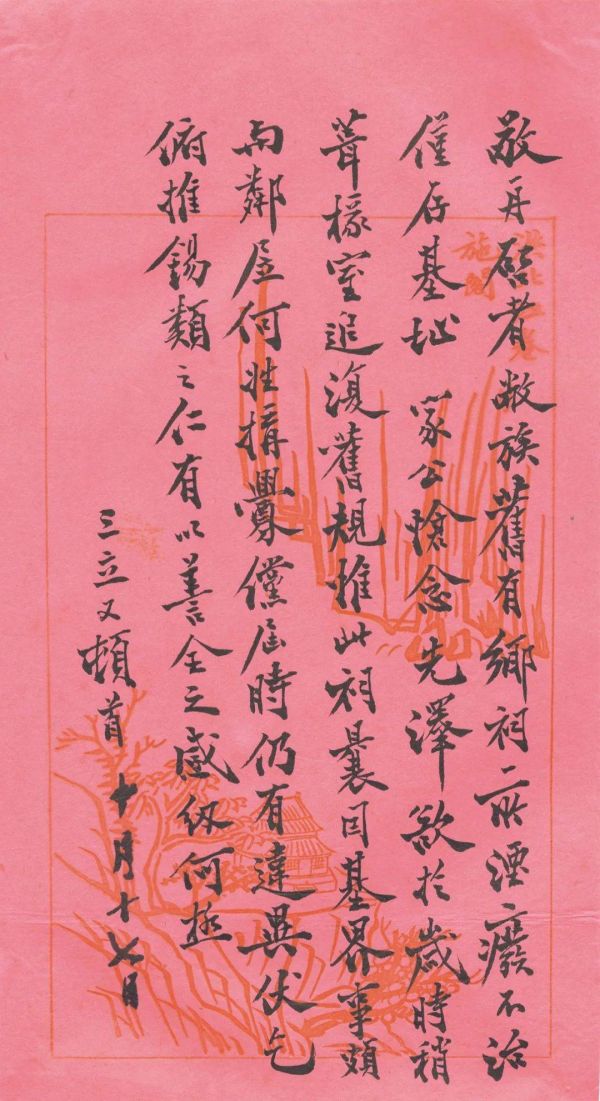 敬再啓者敝族舊有鄉祠一所湮廢不治
僅存基址 家公愴念先澤欲於歲時稍
葺椽室追復舊規惟此祠曩因基界事頗
與鄰居何姓搆釁儻屆時仍有違異伏乞
俯推錫類之仁有以善全之感紉何極
三立又頓首 十月十七日
施閣